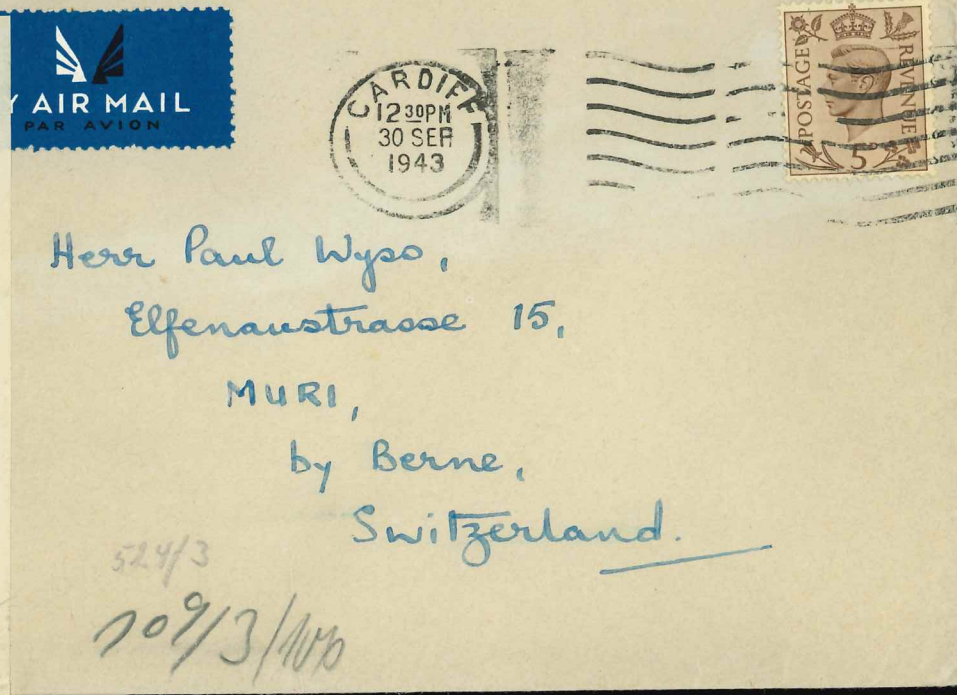 Y AIR MAIL
PAR AVION
CARDIFF
12 30PM
30 SEP
1943
POSTAGE REVENUE
5D
Herr Paul Wyss,
Elfenaustrasse 15,
MURI,
by Berne,
Switzerland.
524/3
109/3/